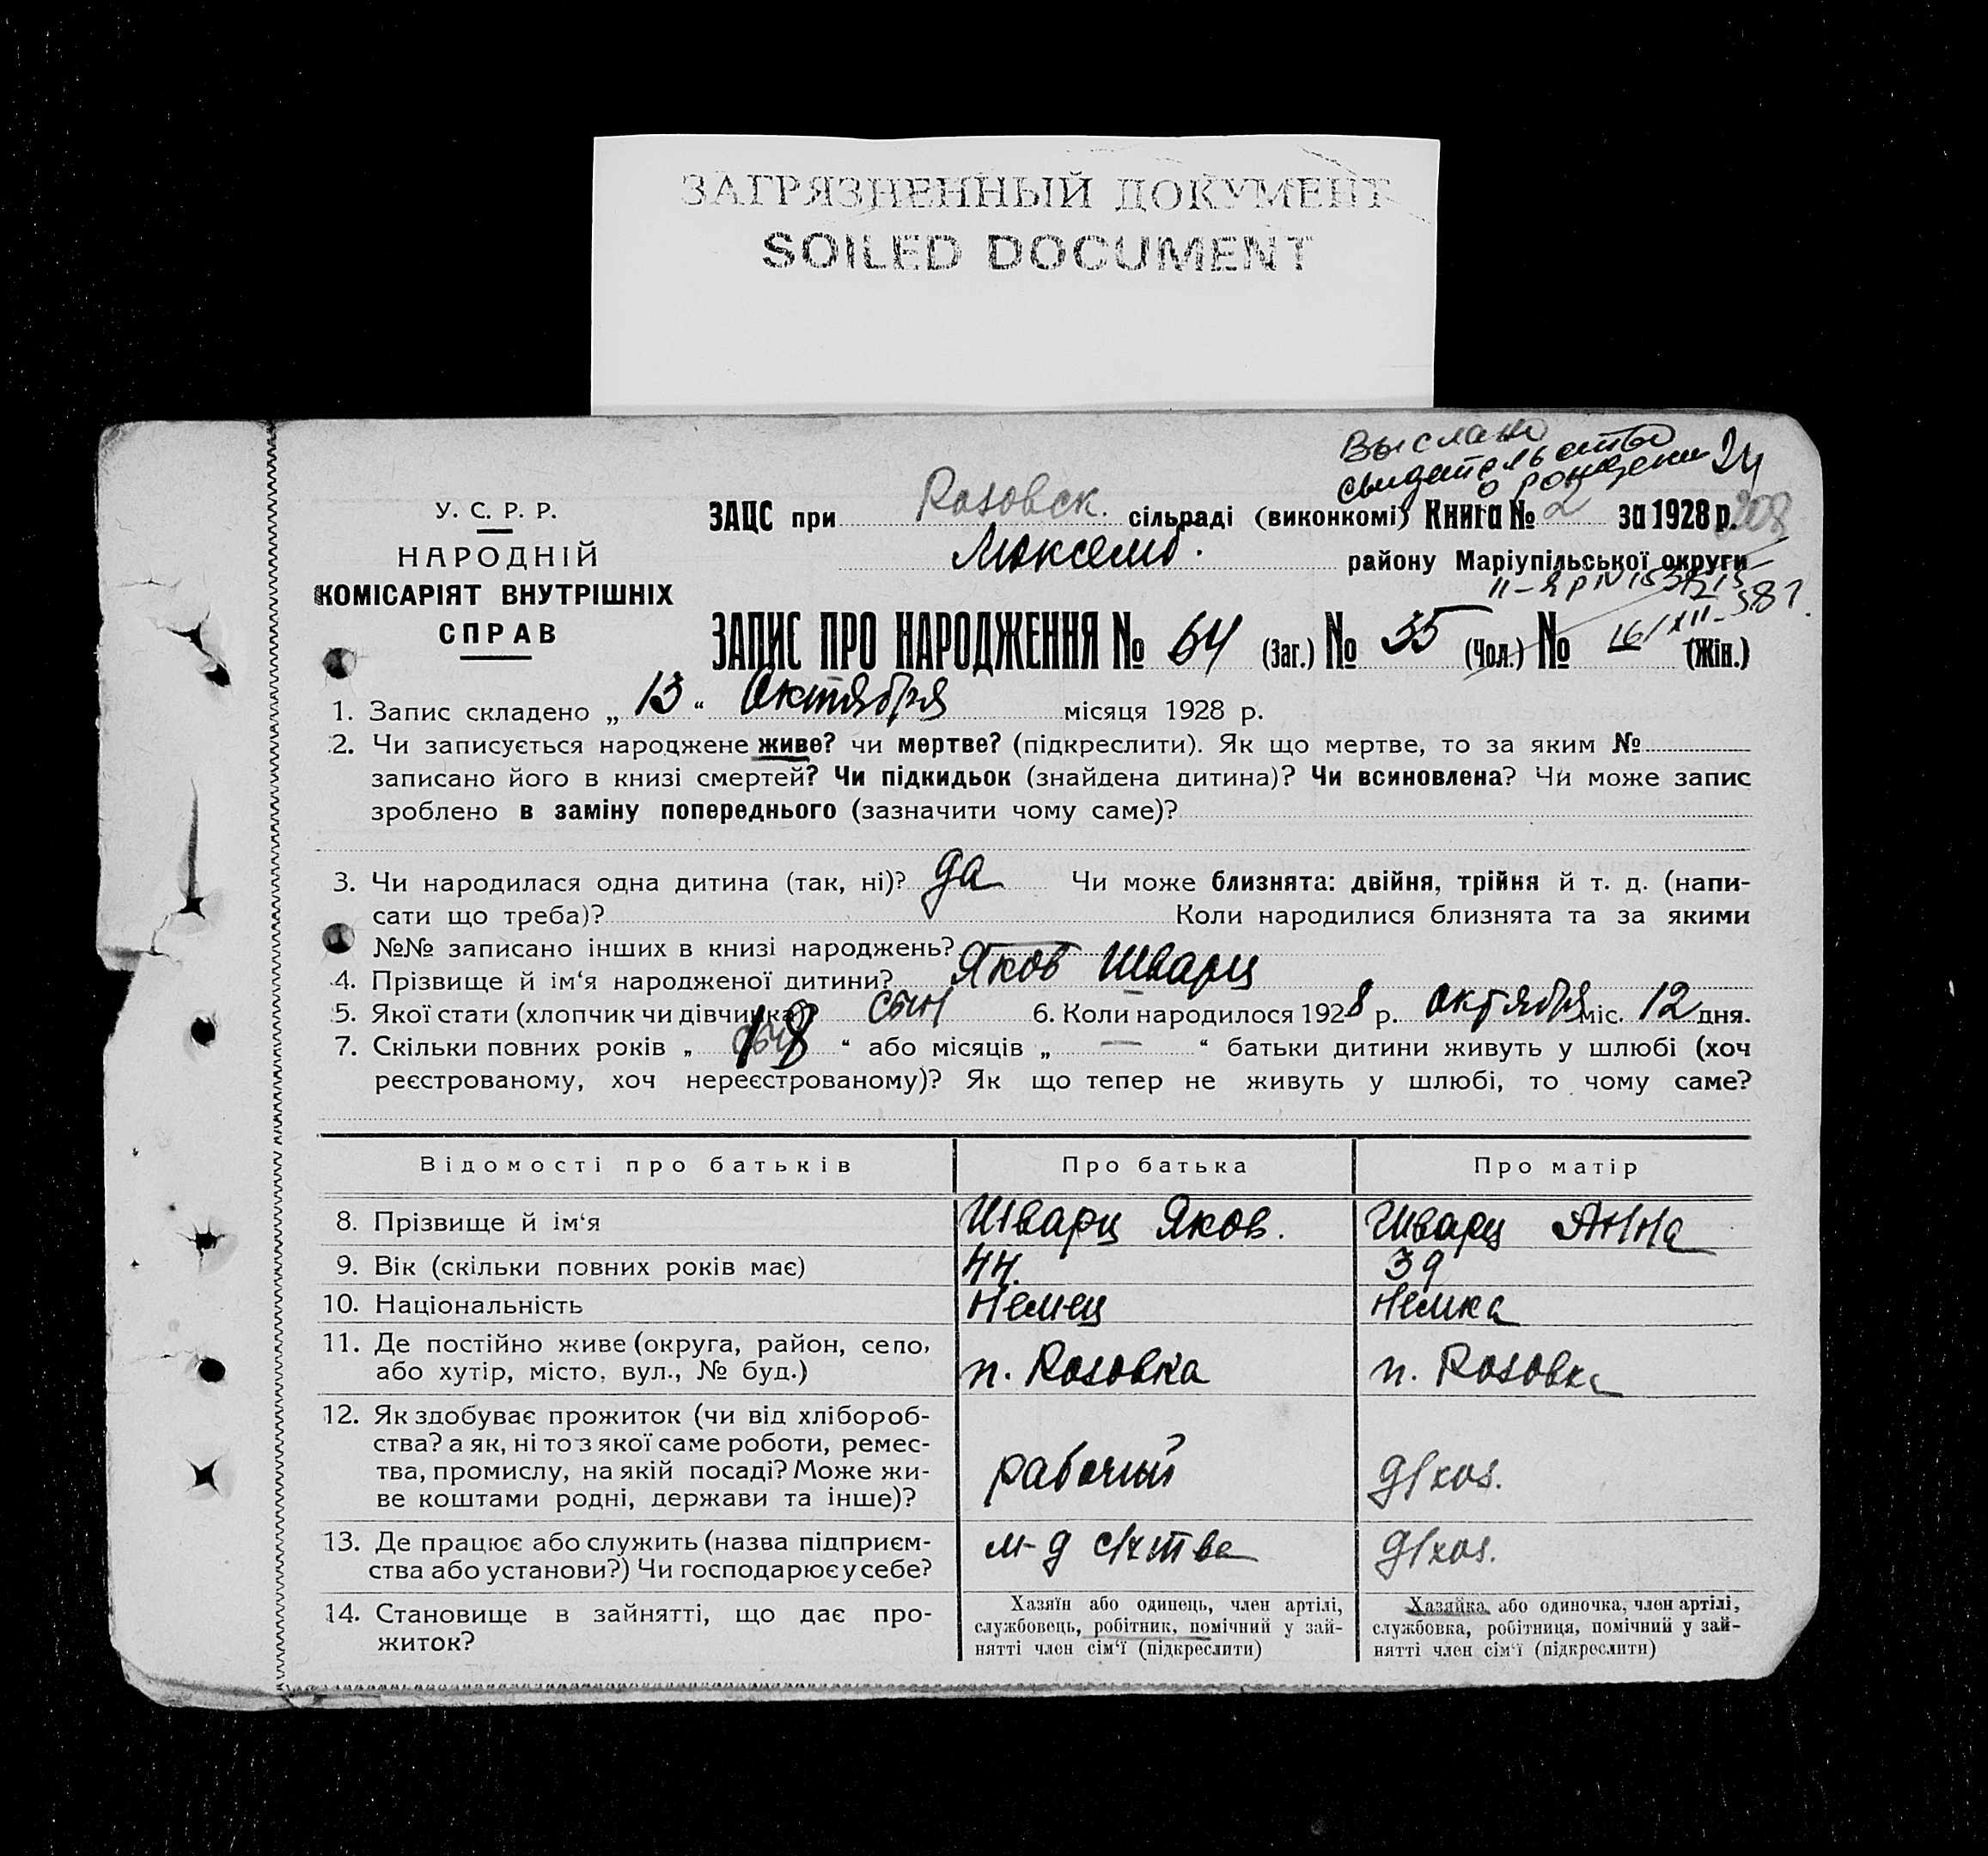 ЗАГРЯЗНЕННЫЙ ДОКУМЕНТ
SOILED DOCUMENT
Выслано
свидетельство
о рождении 24
У. С. Р. Р.
НАРОДНІЙ
КОМІСАРІЯТ ВНУТРІШНІХ
СПРАВ
ЗАЦС при Rosовск. сільраді (виконкомі) Книга № 2 за 1928 р. 208
Люксемб. району Маріупільської округи
ЗАПИС ПРО НАРОДЖЕННЯ № 64 (Заг.) № 35 (Чол.) № (Жін.)
16/XII-581.
1. Запис складено „13“ Октября місяця 1928 р.
2. Чи записується народжене живе? чи мертве? (підкреслити). Як що мертве, то за яким №
записано його в книзі смертей? Чи підкидьок (знайдена дитина)? Чи всиновлена? Чи може запис
зроблено в заміну попереднього (зазначити чому саме)?
3. Чи народилася одна дитина (так, ні)? да Чи може близнята: двійня, трійня й т. д. (напи-
сати що треба)? Коли народилися близнята та за якими
№№ записано інших в книзі народжень? —
4. Прізвище й ім‘я народженої дитини? Яков Шварц
5. Якої стати (хлопчик чи дівчинка)? сын 6. Коли народилося 1928 р. октября міс. 12 дня.
7. Скільки повних років „18“ або місяців „—“ батьки дитини живуть у шлюбі (хоч
реєстрованому, хоч нереєстрованому)? Як що тепер не живуть у шлюбі, то чому саме?
Відомості про батьків Про батька Про матір
8. Прізвище й ім‘я Шварц Яков. Шварц Анна
9. Вік (скільки повних років має) 44. 39
10. Національність Немец Немка
11. Де постійно живе (округа, район, село,
або хутір, місто, вул., № буд.) п. Rosовка п. Rosовка
12. Як здобуває прожиток (чи від хлібороб-
ства? а як, ні то з якої саме роботи, ремес-
тва, промислу, на якій посаді? Може жи-
ве коштами родні, держави та інше)? рабочий д/хоs.
13. Де працює або служить (назва підприєм-
ства або установи?) Чи господарює у себе? д/хоs.
14. Становище в зайнятті, що дає про-
житок?
Хазяїн або одинець, член артілі,
службовець, робітник, помічний у зай-
нятті член сім‘ї (підкреслити)
Хазяйка або одиночка, член артілі,
службовка, робітниця, помічний у зай-
нятті член сім‘ї (підкреслити)